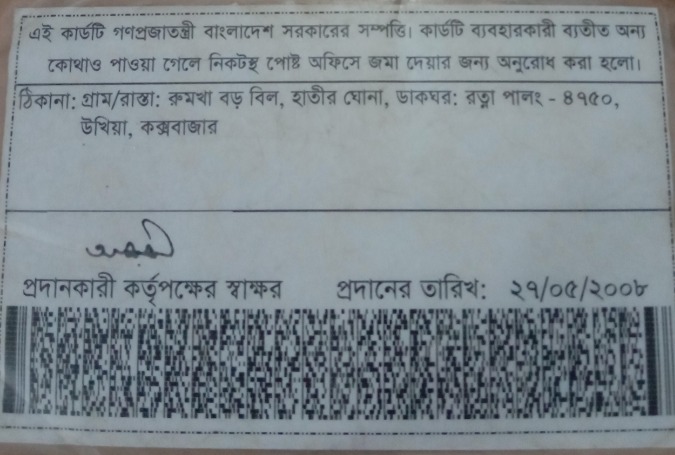 এই কার্ডটি গণপ্রজাতন্ত্রী বাংলাদেশ সরকারের সম্পত্তি। কার্ডটি ব্যবহারকারী ব্যতীত অন্য
কোথাও পাওয়া গেলে নিকটস্থ পোষ্ট অফিসে জমা দেয়ার জন্য অনুরোধ করা হলো।
ঠিকানা: গ্রাম/রাস্তা: রুমখা বড় বিল, হাতীর ঘোনা, ডাকঘর: রত্না পালং - ৪৭৫০,
উখিয়া, কক্সবাজার
প্রদানকারী কর্তৃপক্ষের স্বাক্ষর প্রদানের তারিখ: ২৭/০৫/২০০৮